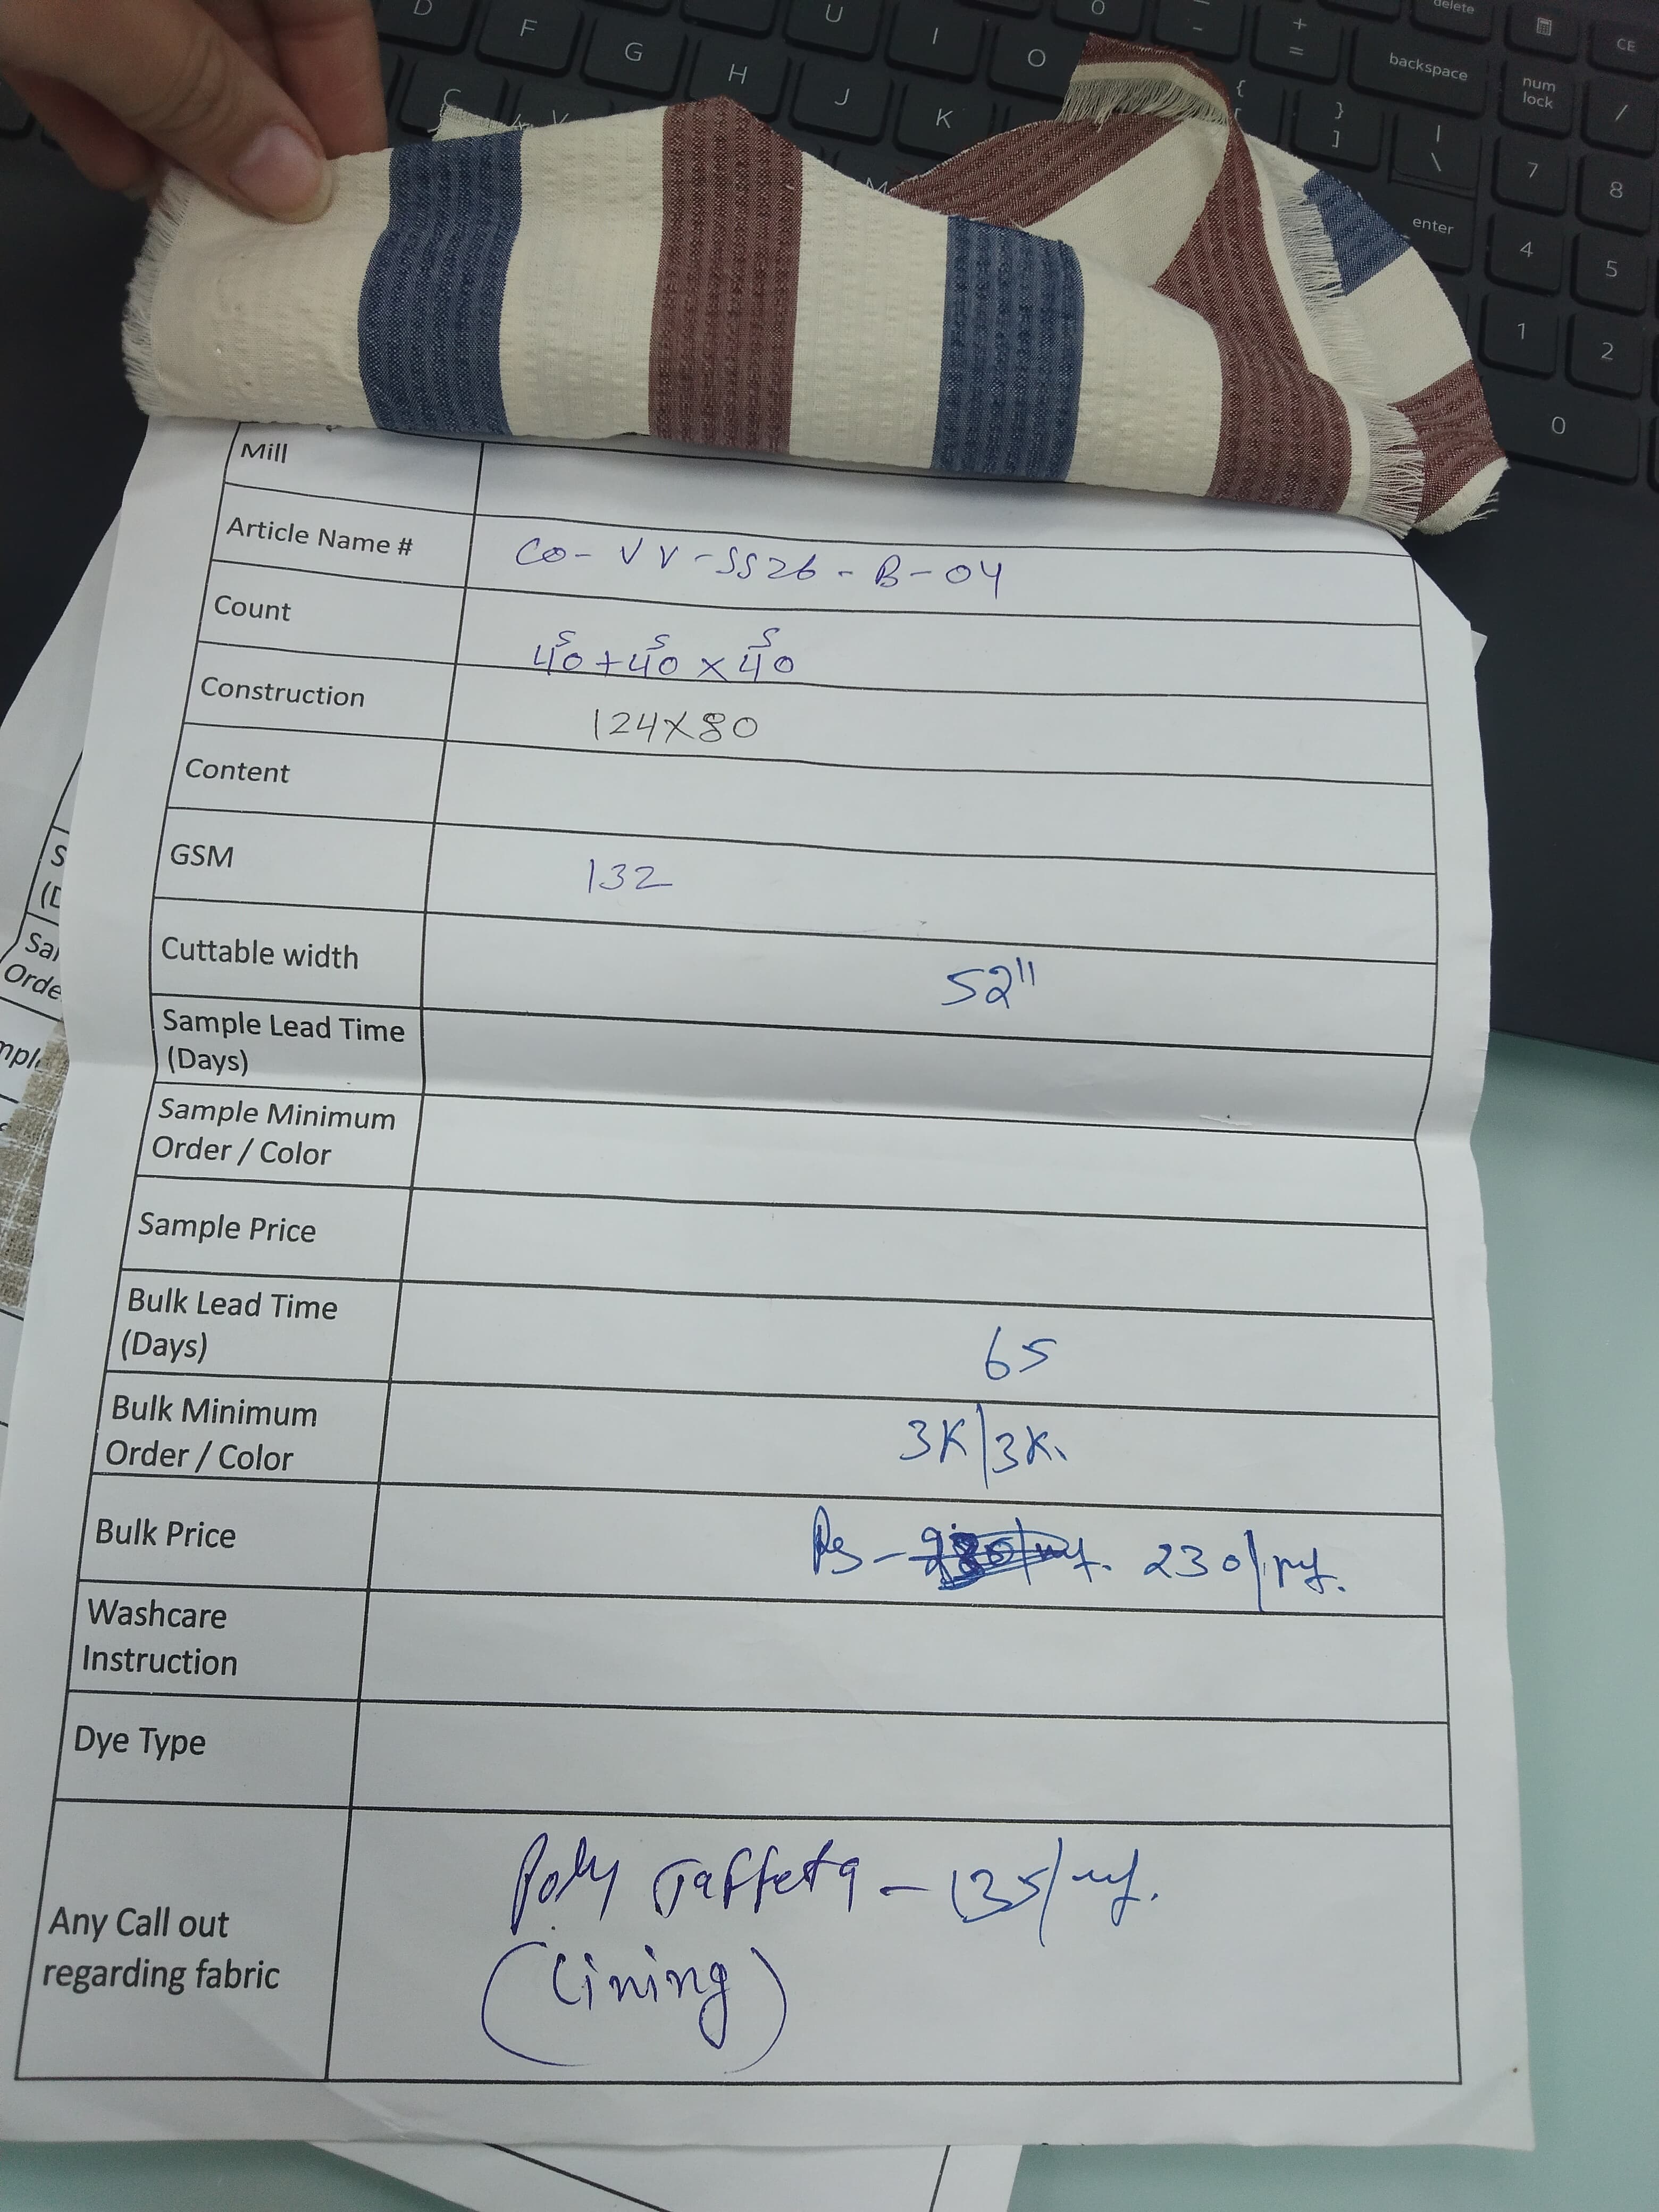 D
F
G
H
U
I
O
J
K
C
V
M
0
-
+
=
backspace
delete
num
lock
CE
/
{
[
}
]
|
\
enter
7
8
4
5
1
2
0
Mill
Article Name # CO-VV-SS26-B-04
Count 40s+40s x 40s
Construction 124x80
Content
GSM 132
Cuttable width 52"
Sample Lead Time
(Days)
Sample Minimum
Order / Color
Sample Price
Bulk Lead Time
(Days) 65
Bulk Minimum
Order / Color 3K/3K.
Bulk Price Rs- 230/
Washcare
Instruction
Dye Type
Any Call out
regarding fabric
Poly Taffeta - 135/
(Lining)
S
(D
Sa
Orde
mpl